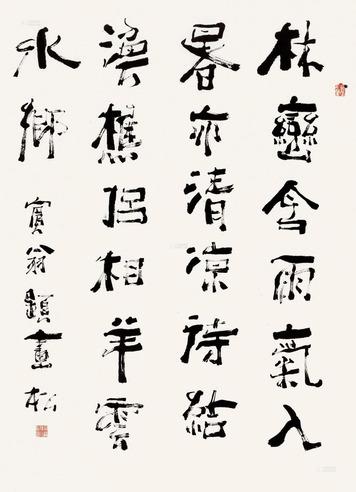 林巒含雨氣入
暑亦清涼詩結
漁樵侶相羊雲
水鄉
賓翁題畫 松